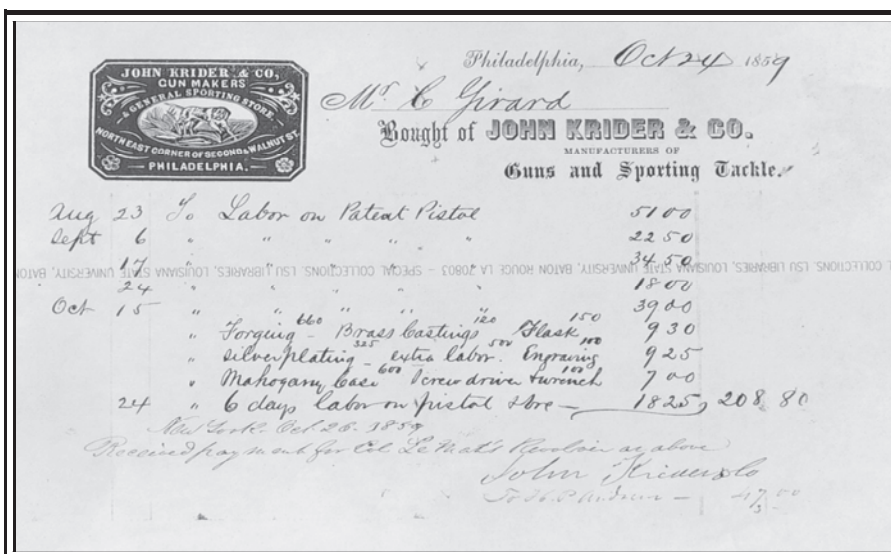 JOHN KRIDER & CO,
GUN MAKERS
& GENERAL SPORTING STORE,
NORTH EAST CORNER OF SECOND & WALNUT ST.
PHILADELPHIA.
Philadelphia, Oct 24 1859
Mr C Girard
Bought of JOHN KRIDER & CO.
MANUFACTURERS OF
Guns and Sporting Tackle.
Aug 23 To Labor on Patent Pistol 51 00
Sept 6 " " " " " 22 50
17 " " " " " 34 50
COLLECTIONS, LSU LIBRARIES, LOUISIANA STATE UNIVERSITY, BATON ROUGE LA 70803 – SPECIAL COLLECTIONS, LSU LIBRARIES, LOUISIANA STATE UNIVERSITY, BATON
24 " " " " " 18 00
Oct 15 " " " " " 39 00
" Forging 660 – Brass Castings 120 Flask 150 9 30
" silver plating 325 – extra labor 500 Engraving 100 9 25
" Mahogany Case 600 Screw driver & wrench 100 7 00
24 " 6 days labor on pistol — 18 25, 208, 80
New York Oct. 26. 1859
Received payment for Col Le Mat's Revolver as above
John Krider & Co
47,00